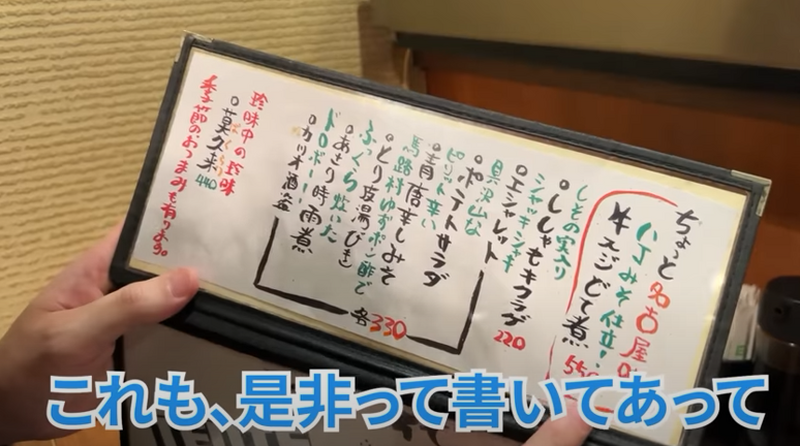 ちょっと名古屋
八丁みそ仕立!
牛スジどて煮
550
しその実入り
ししゃもキクラゲ
シャッキシャキ
エシャレット
220
具沢山な
ポテトサラダ
ピリット辛い
青唐辛しみそ
馬路村ゆずポン酢で
とり皮湯びき
ふっくら炊いた
あさり時雨煮
ドロボー!!
カツオ酒盗
各330
珍味中の珍味
莫久来
ばくらい
440
季節のおつまみも有りマス。
これも、是非って書いてあって